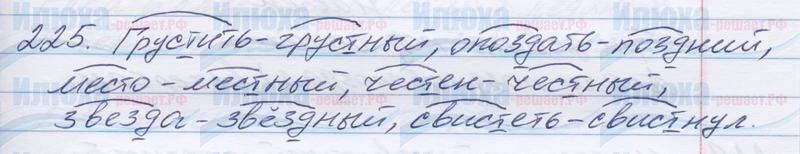 225. Грустить - грустный, опоздать - поздний,
место - местный, честен - честный,
звезда - звёздный, свистеть - свистнул.